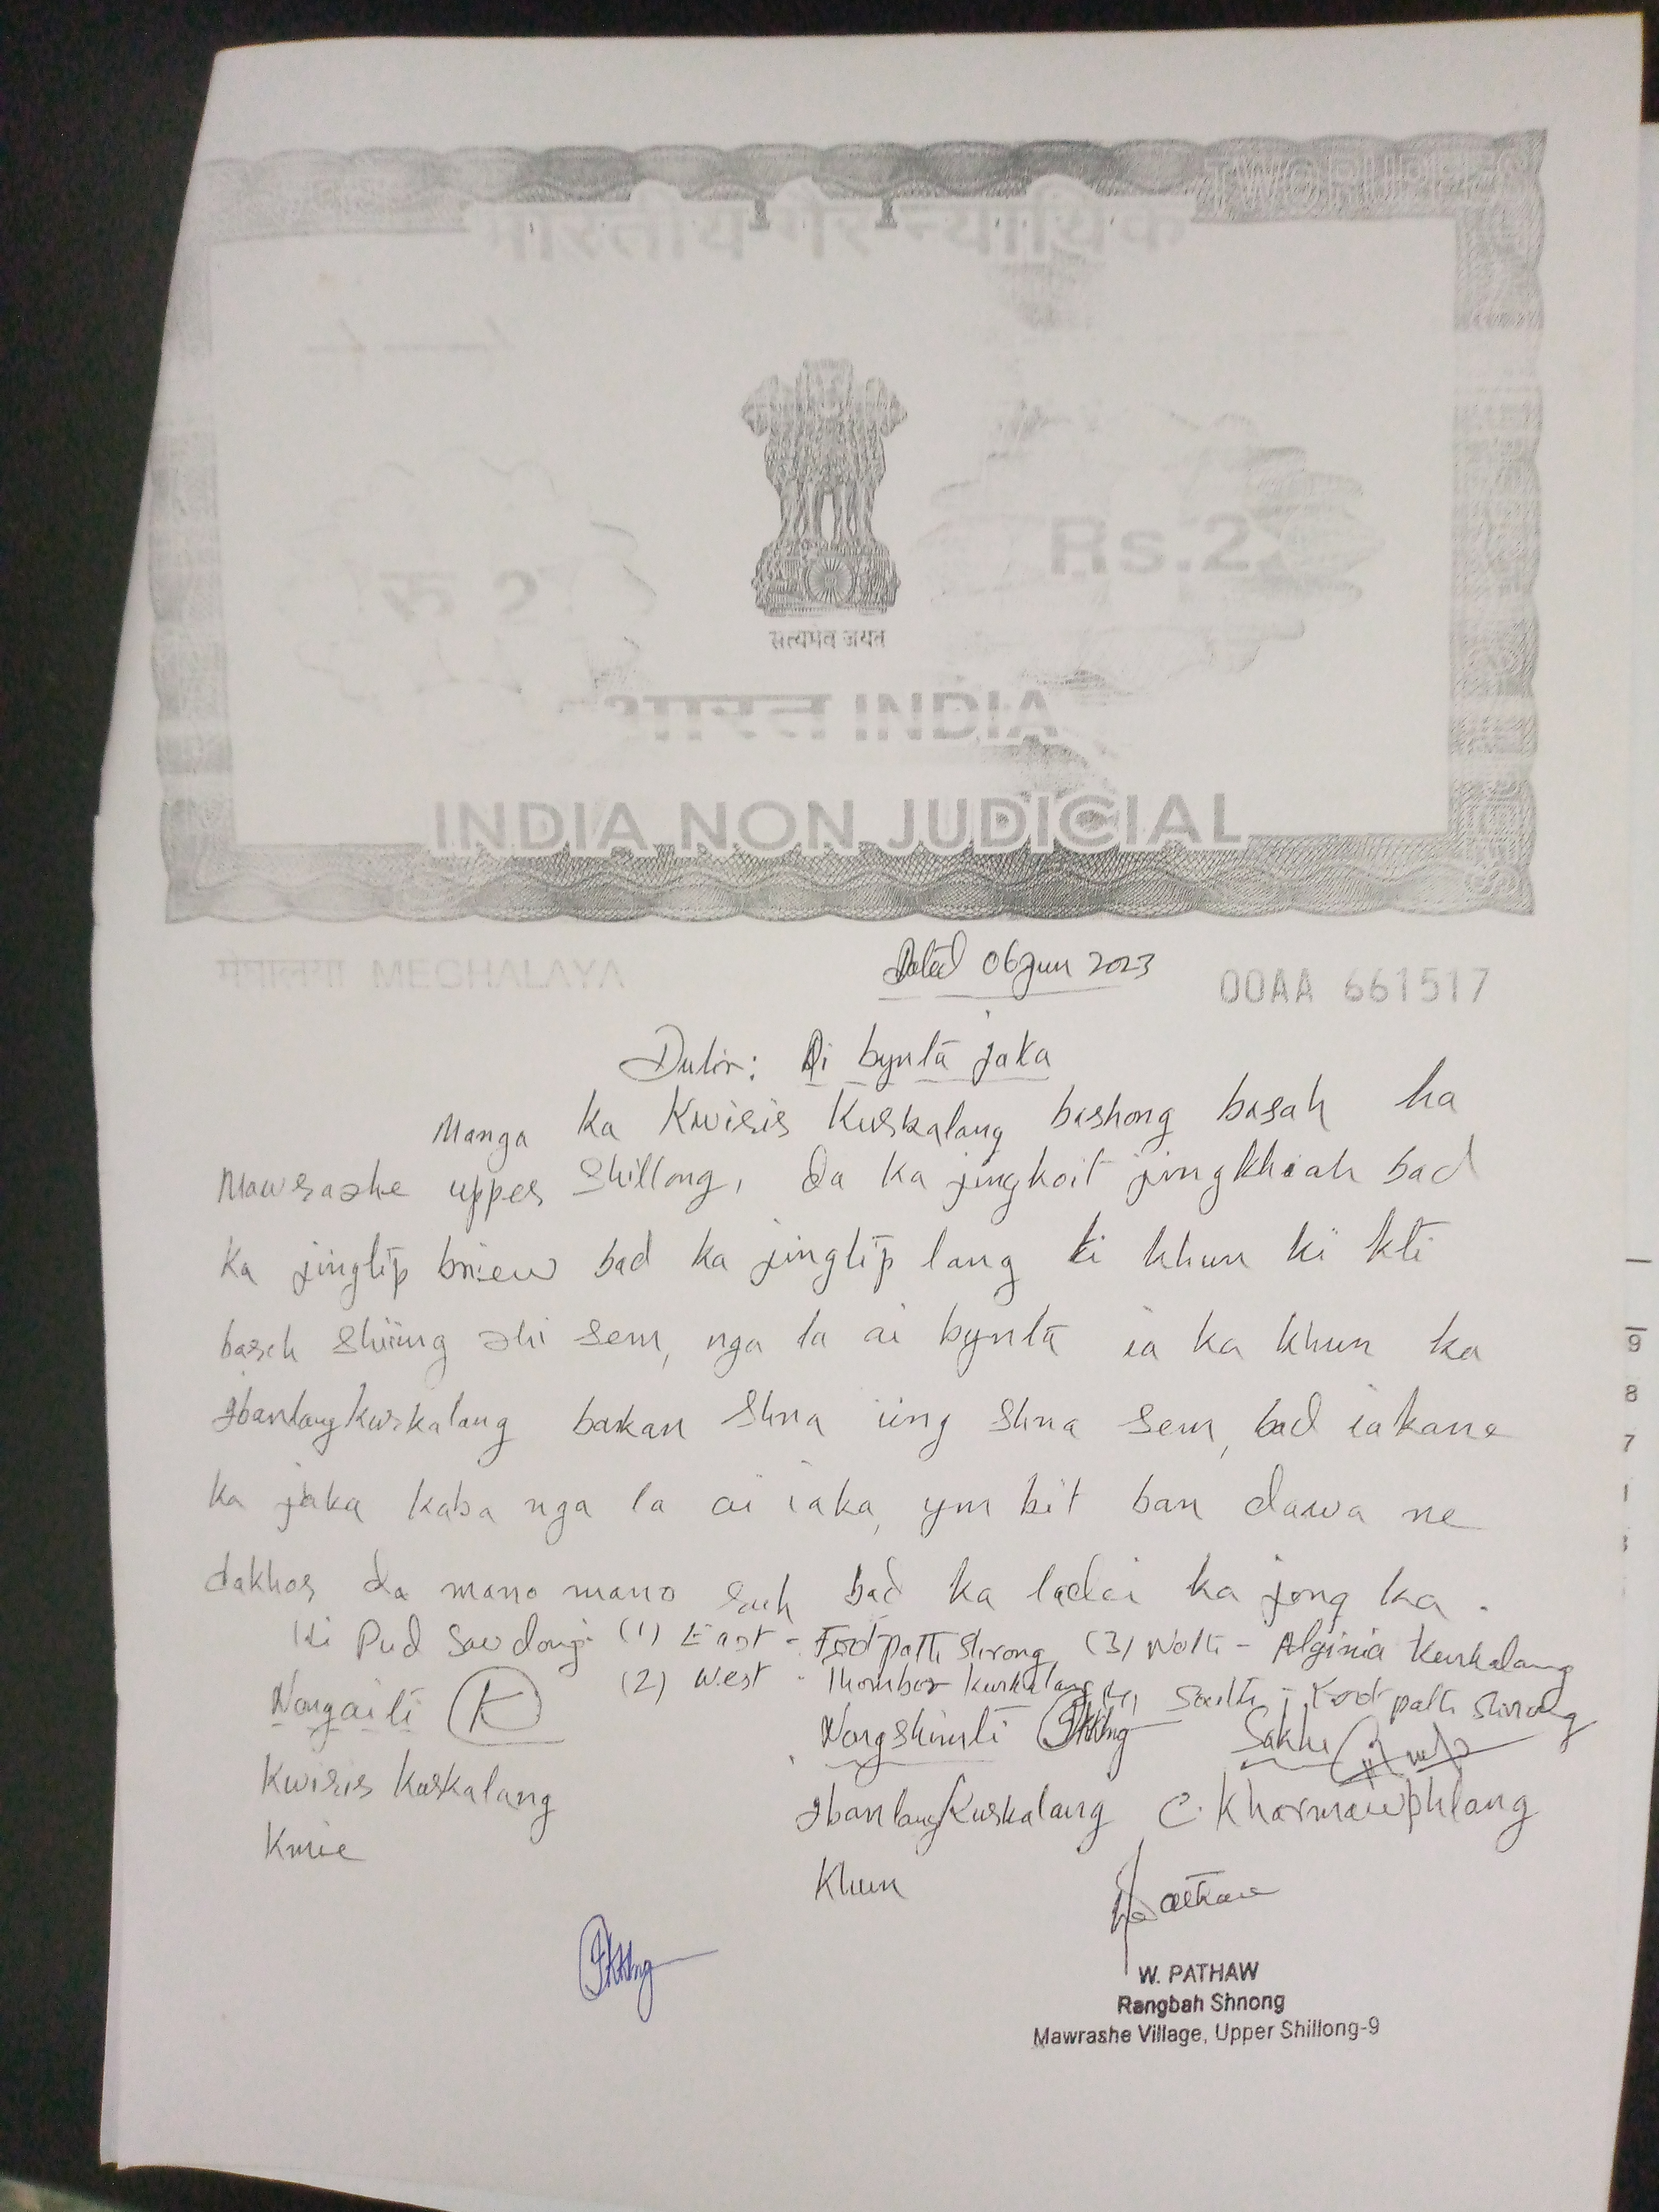 TWO RUPEES
भारतीय गैर न्यायिक
रु 2
Rs.2
सत्यमेव जयते
भारत INDIA
INDIA NON JUDICIAL
मेघालया MEGHALAYA
Dated 06 Jun 2023
00AA 661517
Dulir: Ai bynta jaka
Manga ka Kwisis Kurkalang bashong basah ha
Mawrashe upper Shillong, da ka jingkoit jingkhiah bad
ka jingtip briew bad ka jingtip lang ki khun ki kti
baseh shiing shi sem, nga la ai bynta ia ka khun ka
Ibanlang Kurkalang bakan shna iing shna sem, bad iakane
ka jaka kaba nga la ai iaka, ym bit ban dawa ne
dakhol da mano mano ruh bad ka ladei ka jong ka.
Ki Pud sawdong: (1) East - Foot path shnong, (3) Noth - Alginia Kurkalang
(2) West - Thombor Kurkalang (4) South - Foot path shnong
Nongaiti K Nongshimti Sakhi
Kwisis Kurkalang Ibanlang Kurkalang C. Kharmawphlang
Kmie Khun
Pathaw
W. PATHAW
Rangbah Shnong
Mawrashe Village, Upper Shillong-9
9
8
7
1